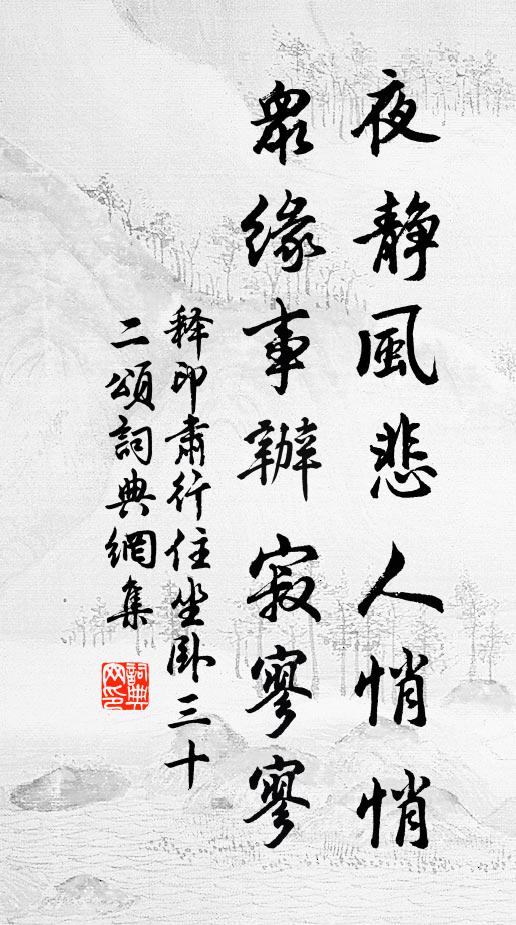 夜靜風悲人悄悄
衆緣事辦寂寥寥
釋印肅行住坐臥三十
二頌詞典網集
詞典網印